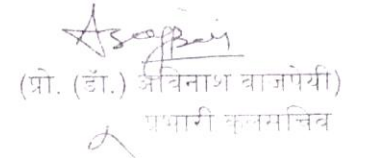 (प्रो. (डॉ.) अविनाश वाजपेयी)
प्रभारी कुलसचिव